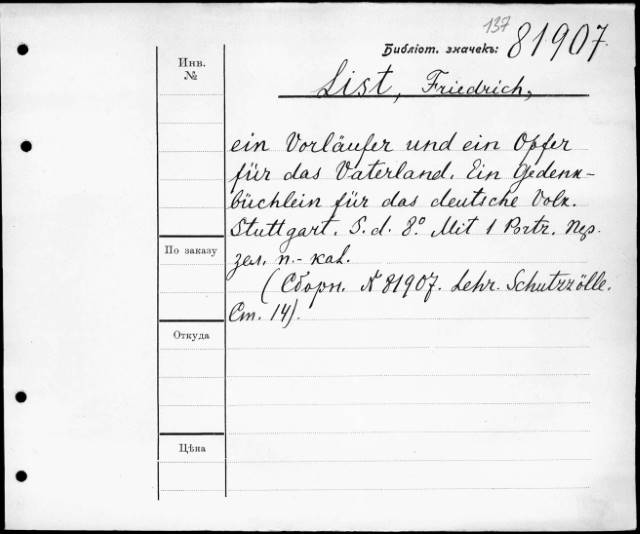 137
Библіот. значекъ: 81907.
Инв.
№
List, Friedrich,
ein Vorläufer und ein Opfer
für das Vaterland. Ein Gedenk-
büchlein für das deutsche Volk.
Stuttgart. S. d. 8° Mit 1 Portr. Пер.
зел. п.-кал.
По заказу
(Сборн. № 81907. Lehr. Schutzzölle.
Ст. 14).
Откуда
Цѣна